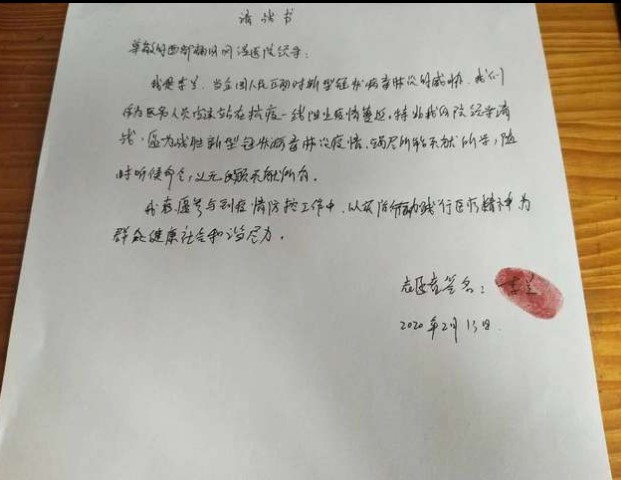 请战书
尊敬的西部 医院领导：
我是李兰，当全国人民正面对新型冠状病毒肺炎的威胁，我们
作为医务人员应该站在抗疫一线阻止疫情蔓延。特此我向院领导请
战，愿为战胜新型冠状病毒肺炎疫情，竭尽所能贡献所学，随
时听候命令，义无反顾贡献所有。
我志愿参与到疫情防控工作中，以实际行动践行医疗精神为
群众健康社会和谐尽力。
志愿者签名：李兰
2020年2月13日